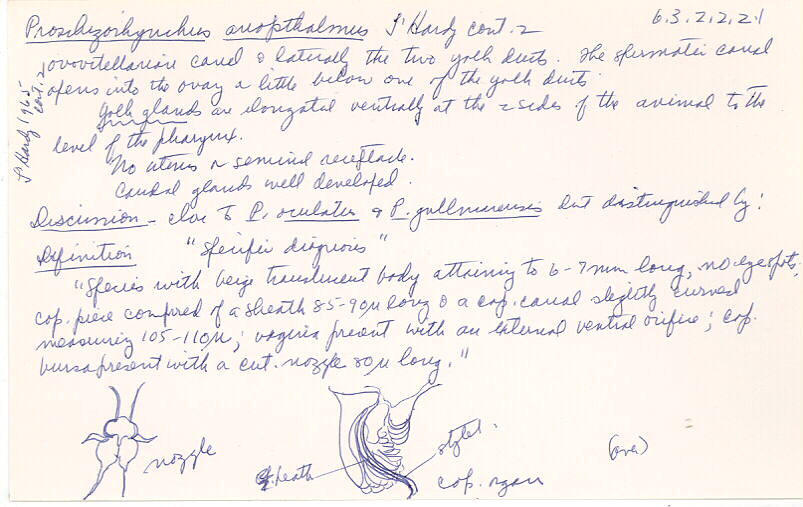 Proschizorhynchus anopthalmus L'Hardy cont. 2
6.3.2.2.2.1
L'Hardy 1965 cont. 2
ovovitellarian canal & laterally the two yolk ducts. The spermatic canal
opens into the ovary a little below one of the yolk ducts.
Yolk glands are elongated ventrally at the 2 sides of the animal to the
level of the pharynx.
No uterus or seminal receptacle.
Caudal glands well developed.
Discussion - close to P. oculatus & P. gullmarensis but distinguished by:
Definition "specific diagnosis"
"Species with beige translucent body attaining to 6-7mm long, no eye spots.
cop. piece composed of a sheath 85-90µ long & a cop. canal slightly curved
measuring 105-110µ; vagina present with an external ventral orifice; cop.
bursa present with a cut. nozzle 20µ long."
nozzle
sheath
stylet.
cop. organ
(over)